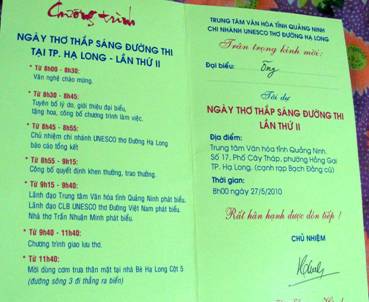 Chương trình
NGÀY THƠ THẮP SÁNG ĐƯỜNG THI
TẠI TP. HẠ LONG - LẦN THỨ II
* Từ 8h00 - 8h30:
Văn nghệ chào mừng.
* Từ 8h30 - 8h45:
Tuyên bố lý do, giới thiệu đại biểu,
tặng hoa, công bố chương trình làm việc.
* Từ 8h45 - 8h55:
Chủ nhiệm chi nhánh UNESCO thơ Đường Hạ Long
báo cáo tổng kết
* Từ 8h55 - 9h15:
Công bố quyết định khen thưởng, trao thưởng.
* Từ 9h15 - 9h40:
Lãnh đạo Trung tâm Văn hóa tỉnh Quảng Ninh phát biểu.
Lãnh đạo CLB UNESCO thơ Đường Việt Nam phát biểu.
Nhà thơ Trần Nhuận Minh phát biểu.
* Từ 9h40 - 11h40:
Chương trình giao lưu thơ.
* Từ 11h40:
Mời dùng cơm trưa thân mật tại nhà Bè Hạ Long Cột 5
(đường sông 3 đi thẳng ra biển)
TRUNG TÂM VĂN HÓA TỈNH QUẢNG NINH
CHI NHÁNH UNESCO THƠ ĐƯỜNG HẠ LONG
Trân trọng kính mời:
Đại biểu: Ông
Tới dự
NGÀY THƠ THẮP SÁNG ĐƯỜNG THI
LẦN THỨ II
Địa điểm:
Trung tâm Văn hóa tỉnh Quảng Ninh.
Số 17, Phố Cây Tháp, phường Hồng Gai
TP. Hạ Long. (cạnh rạp Bạch Đằng cũ)
Thời gian:
8h00 ngày 27/5/2010
Rất hân hạnh được đón tiếp !
CHỦ NHIỆM